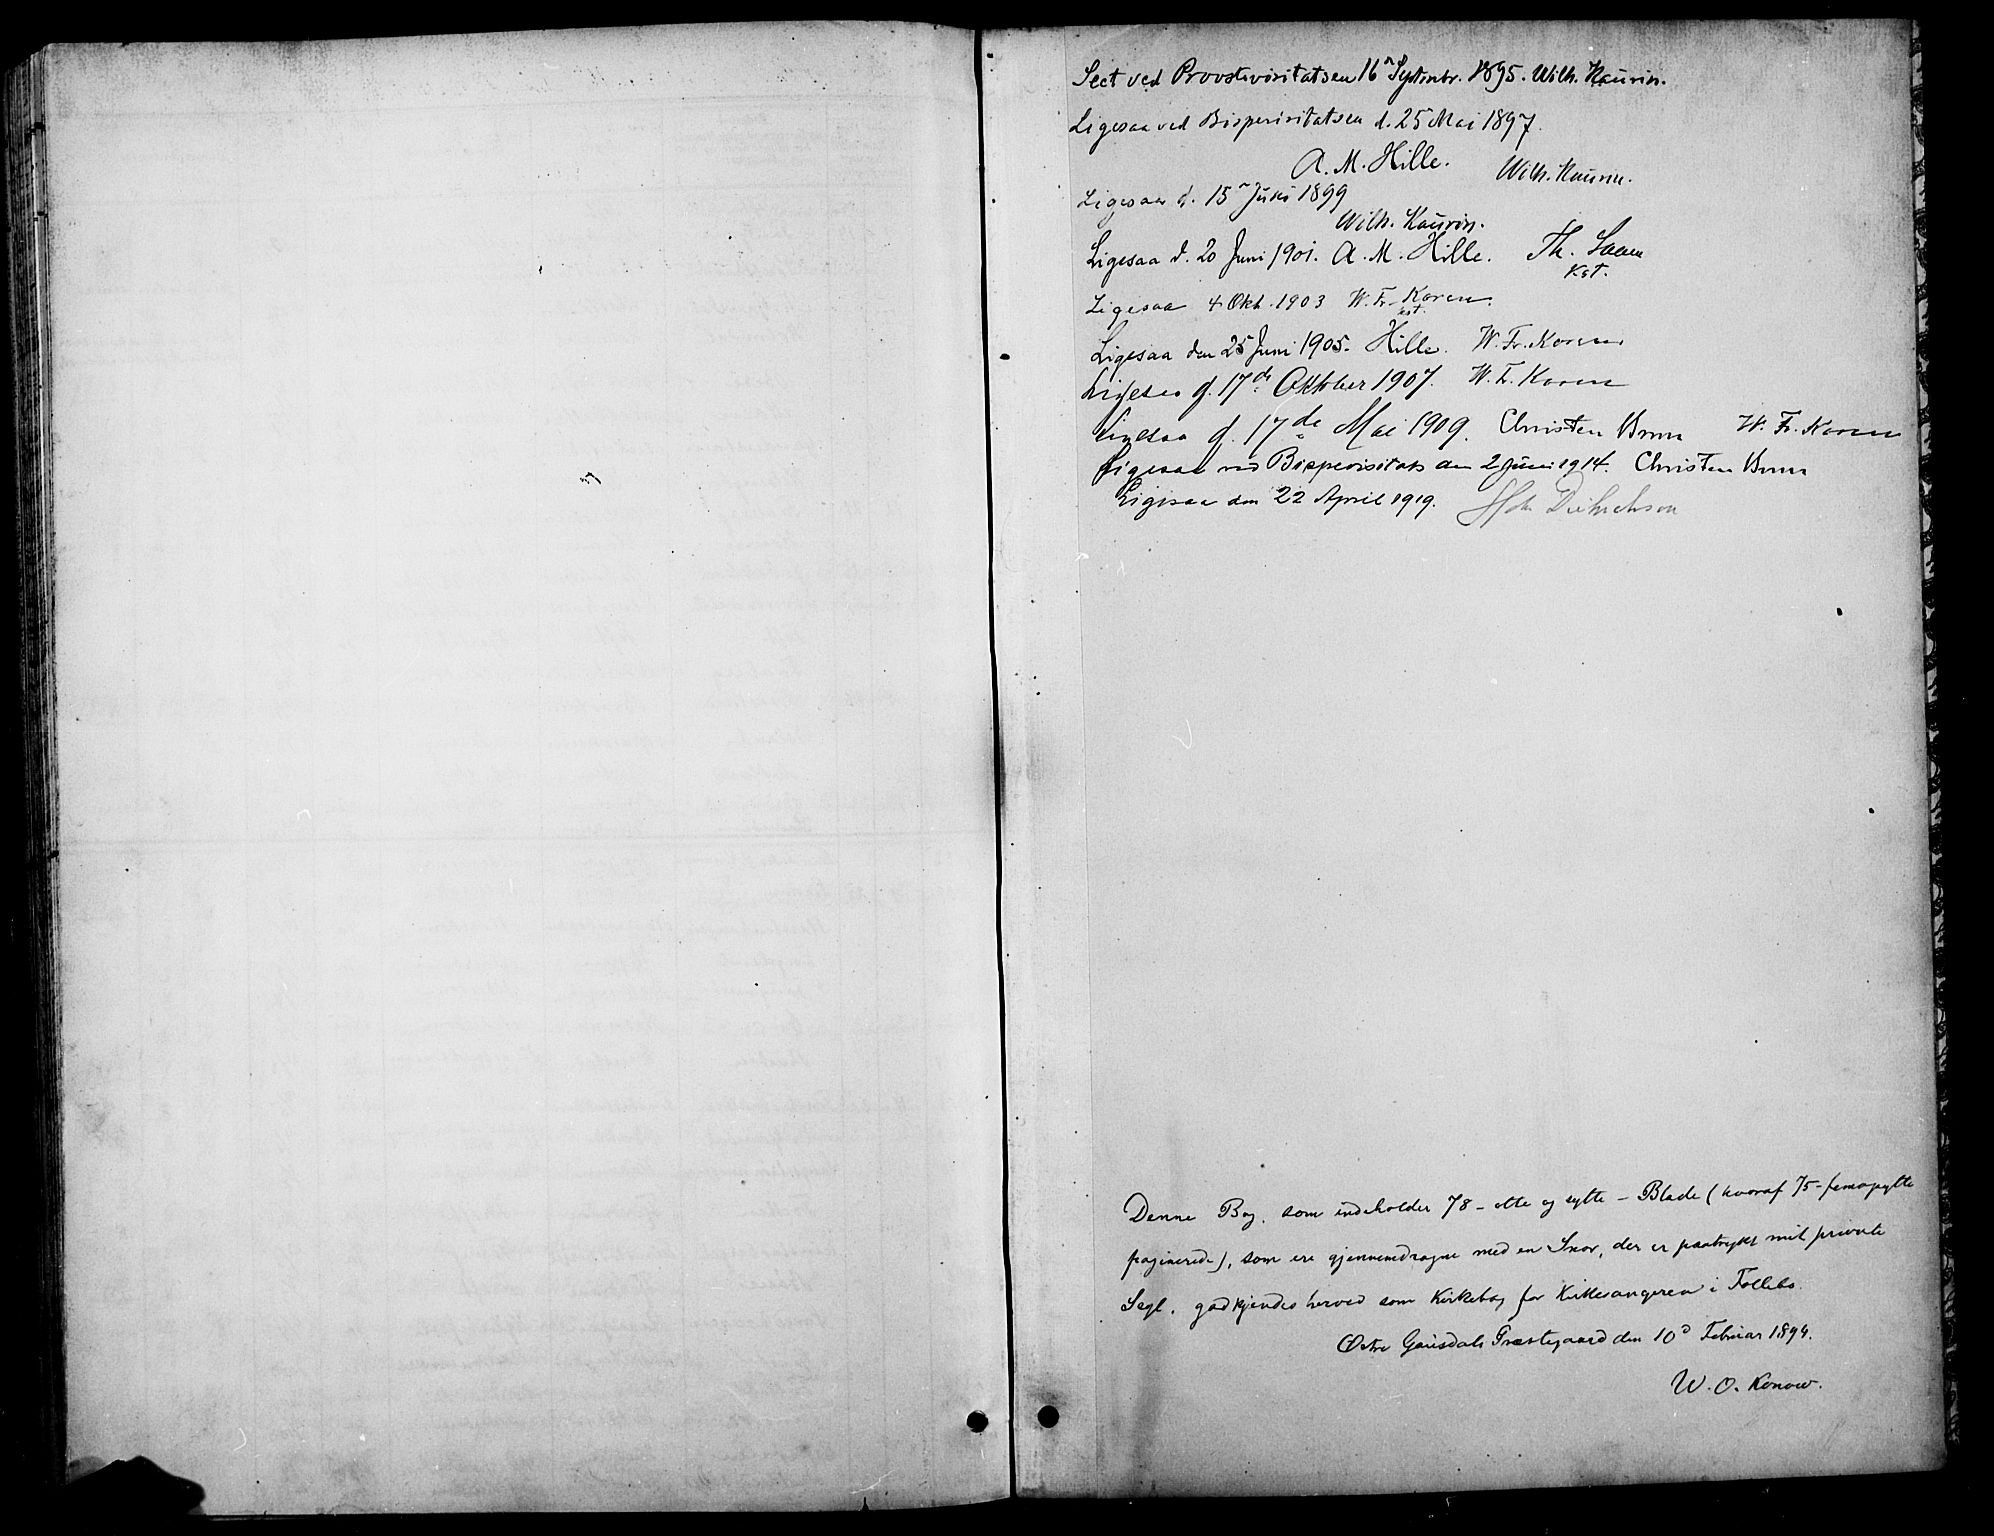 Seet ved Provstevisitatsen 16 Septmbr. 1895. Wilh. Kaurin.
Ligesaa ved Bispevisitatsen d. 25 Mai 1897.
A. M. Hille. Wilh. Kaurin.
Ligesaa d. 15 Juni 1899
Wilh. Kaurin.
Ligesaa d. 20 Juni 1901. A. M. Hille. Th.
Kst.
Ligesaa 4 Okt. 1903 W. Fr. Koren.
kst.
Ligesaa den 25 Juni 1905. Hille. W. Fr. Koren
Ligesaa d. 17de Oktober 1907. W. F. Koren
Ligesaa d. 17de Mai 1909. Christen Brun W. Fr. Koren
Ligesaa ved Bispevisitats den 2 Juni 1914. Christen Brun
Ligesaa den 22 April 1919. Dietrichson
Denne Bog, som indeholder 78 - otte og sytte - Blade (hvoraf 75 - femogsytte
paginerede), som ere gjennemdragne med en Snor, der er paatrykt mit private
Segl, godkjendes herved som Kirkebog for Kirkesangeren i Follebo.
Østre Gausdals Præstegaard den 10d Februar 1894.
W. O. Konow.